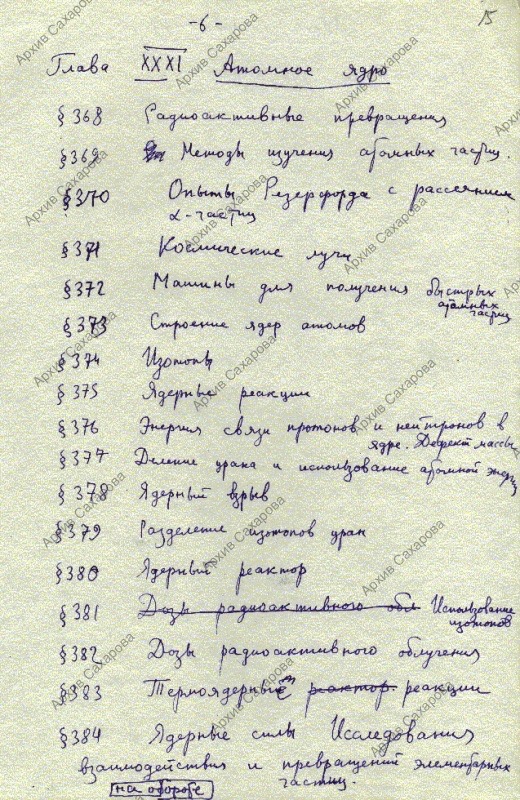 -6-
15
Глава XXXI Атомное ядро
§368 Радиоактивные превращения
§369 Методы изучения атомных частиц.
§370 Опыты Резерфорда с рассеянием
α-частиц
§371 Космические лучи
§372 Машины для получения быстрых
атомных
частиц
§373 Строение ядер атомов
§374 Изотопы
§375 Ядерные реакции
§376 Энергия связи протонов и нейтронов в
ядре. Дефект массы
§377 Деление урана и использование атомной энергии
§378 Ядерный взрыв
§379 Разделение изотопов уран
§380 Ядерный реактор
§381 Дозы радиоактивного обл Использование
изотопов
§382 Дозы радиоактивного облучения
§383 Термоядерные реактор. реакции
§384 Ядерные силы Исследования
взаимодействия и превращений элементарных
частиц.
на обороте
Архив Сахарова